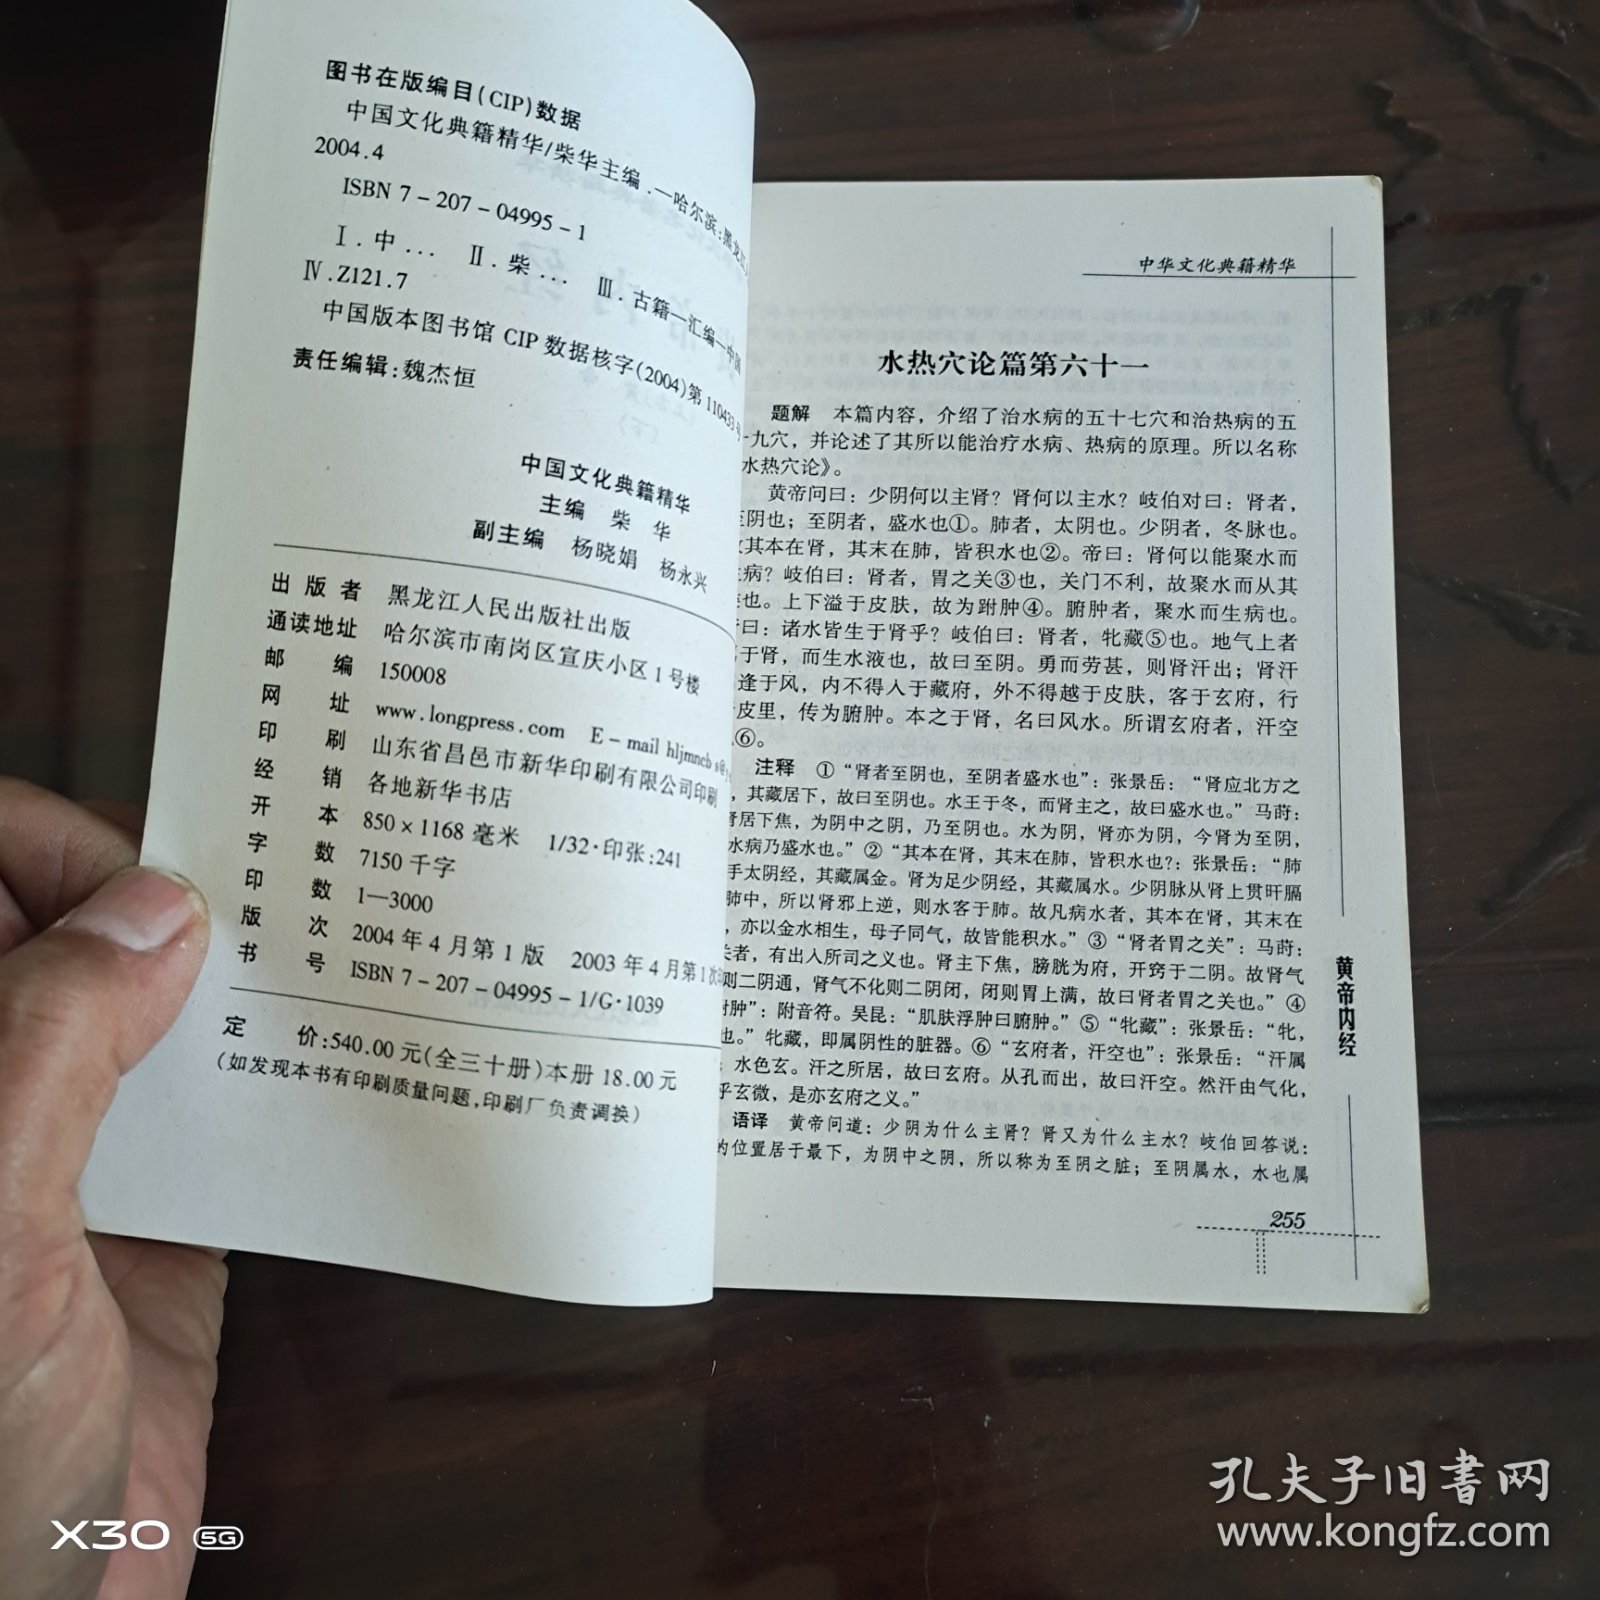 图书在版编目(CIP)数据
中国文化典籍精华/柴华主编.—哈尔滨:黑龙江
2004.4
ISBN 7-207-04995-1
Ⅰ.中… Ⅱ.柴… Ⅲ.古籍—汇编—中国
Ⅳ.Z121.7
中国版本图书馆 CIP 数据核字(2004)第 110433 号
责任编辑:魏杰恒
中国文化典籍精华
主编 柴 华
副主编 杨晓娟 杨永兴
出 版 者 黑龙江人民出版社出版
通读地址 哈尔滨市南岗区宣庆小区1号楼
邮 编 150008
网 址 www.longpress.com E-mail hljmncb s@y
印 刷 山东省昌邑市新华印刷有限公司印刷
经 销 各地新华书店
开 本 850×1168 毫米 1/32·印张:241
字 数 7150 千字
印 数 1—3000
版 次 2004年4月第1版 2003年4月第1次
书 号 ISBN 7-207-04995-1/G·1039
定 价:540.00元(全三十册)本册 18.00元
(如发现本书有印刷质量问题,印刷厂负责调换)
中华文化典籍精华
水热穴论篇第六十一
题解 本篇内容，介绍了治水病的五十七穴和治热病的五
十九穴，并论述了其所以能治疗水病、热病的原理。所以名称
水热穴论》。
黄帝问曰：少阴何以主肾？肾何以主水？岐伯对曰：肾者，
至阴也；至阴者，盛水也①。肺者，太阴也。少阴者，冬脉也。
故其本在肾，其末在肺，皆积水也②。帝曰：肾何以能聚水而
生病？岐伯曰：肾者，胃之关③也，关门不利，故聚水而从其
类也。上下溢于皮肤，故为跗肿④。腑肿者，聚水而生病也。
帝曰：诸水皆生于肾乎？岐伯曰：肾者，牝藏⑤也。地气上者
属于肾，而生水液也，故曰至阴。勇而劳甚，则肾汗出；肾汗
逢于风，内不得入于藏府，外不得越于皮肤，客于玄府，行
于皮里，传为腑肿。本之于肾，名曰风水。所谓玄府者，汗空
⑥。
注释 ①“肾者至阴也，至阴者盛水也”：张景岳：“肾应北方之
，其藏居下，故曰至阴也。水王于冬，而肾主之，故曰盛水也。”马莳：
肾居下焦，为阴中之阴，乃至阴也。水为阴，肾亦为阴，今肾为至阴，
水病乃盛水也。”②“其本在肾，其末在肺，皆积水也?：张景岳：“肺
手太阴经，其藏属金。肾为足少阴经，其藏属水。少阴脉从肾上贯肝膈
肺中，所以肾邪上逆，则水客于肺。故凡病水者，其本在肾，其末在
，亦以金水相生，母子同气，故皆能积水。”③“肾者胃之关”：马莳：
关者，有出入所司之义也。肾主下焦，膀胱为府，开窍于二阴。故肾气
则二阴通，肾气不化则二阴闭，闭则胃上满，故曰肾者胃之关也。”④
跗肿”：附音符。吴昆：“肌肤浮肿曰腑肿。”⑤“牝藏”：张景岳：“牝，
也。”牝藏，即属阴性的脏器。⑥“玄府者，汗空也”：张景岳：“汗属
水色玄。汗之所居，故曰玄府。从孔而出，故曰汗空。然汗由气化，
乎玄微，是亦玄府之义。”
语译 黄帝问道：少阴为什么主肾？肾又为什么主水？岐伯回答说：
的位置居于最下，为阴中之阴，所以称为至阴之脏；至阴属水，水也属
黄帝内经
255
X30 5G
孔夫子旧书网
www.kongfz.com